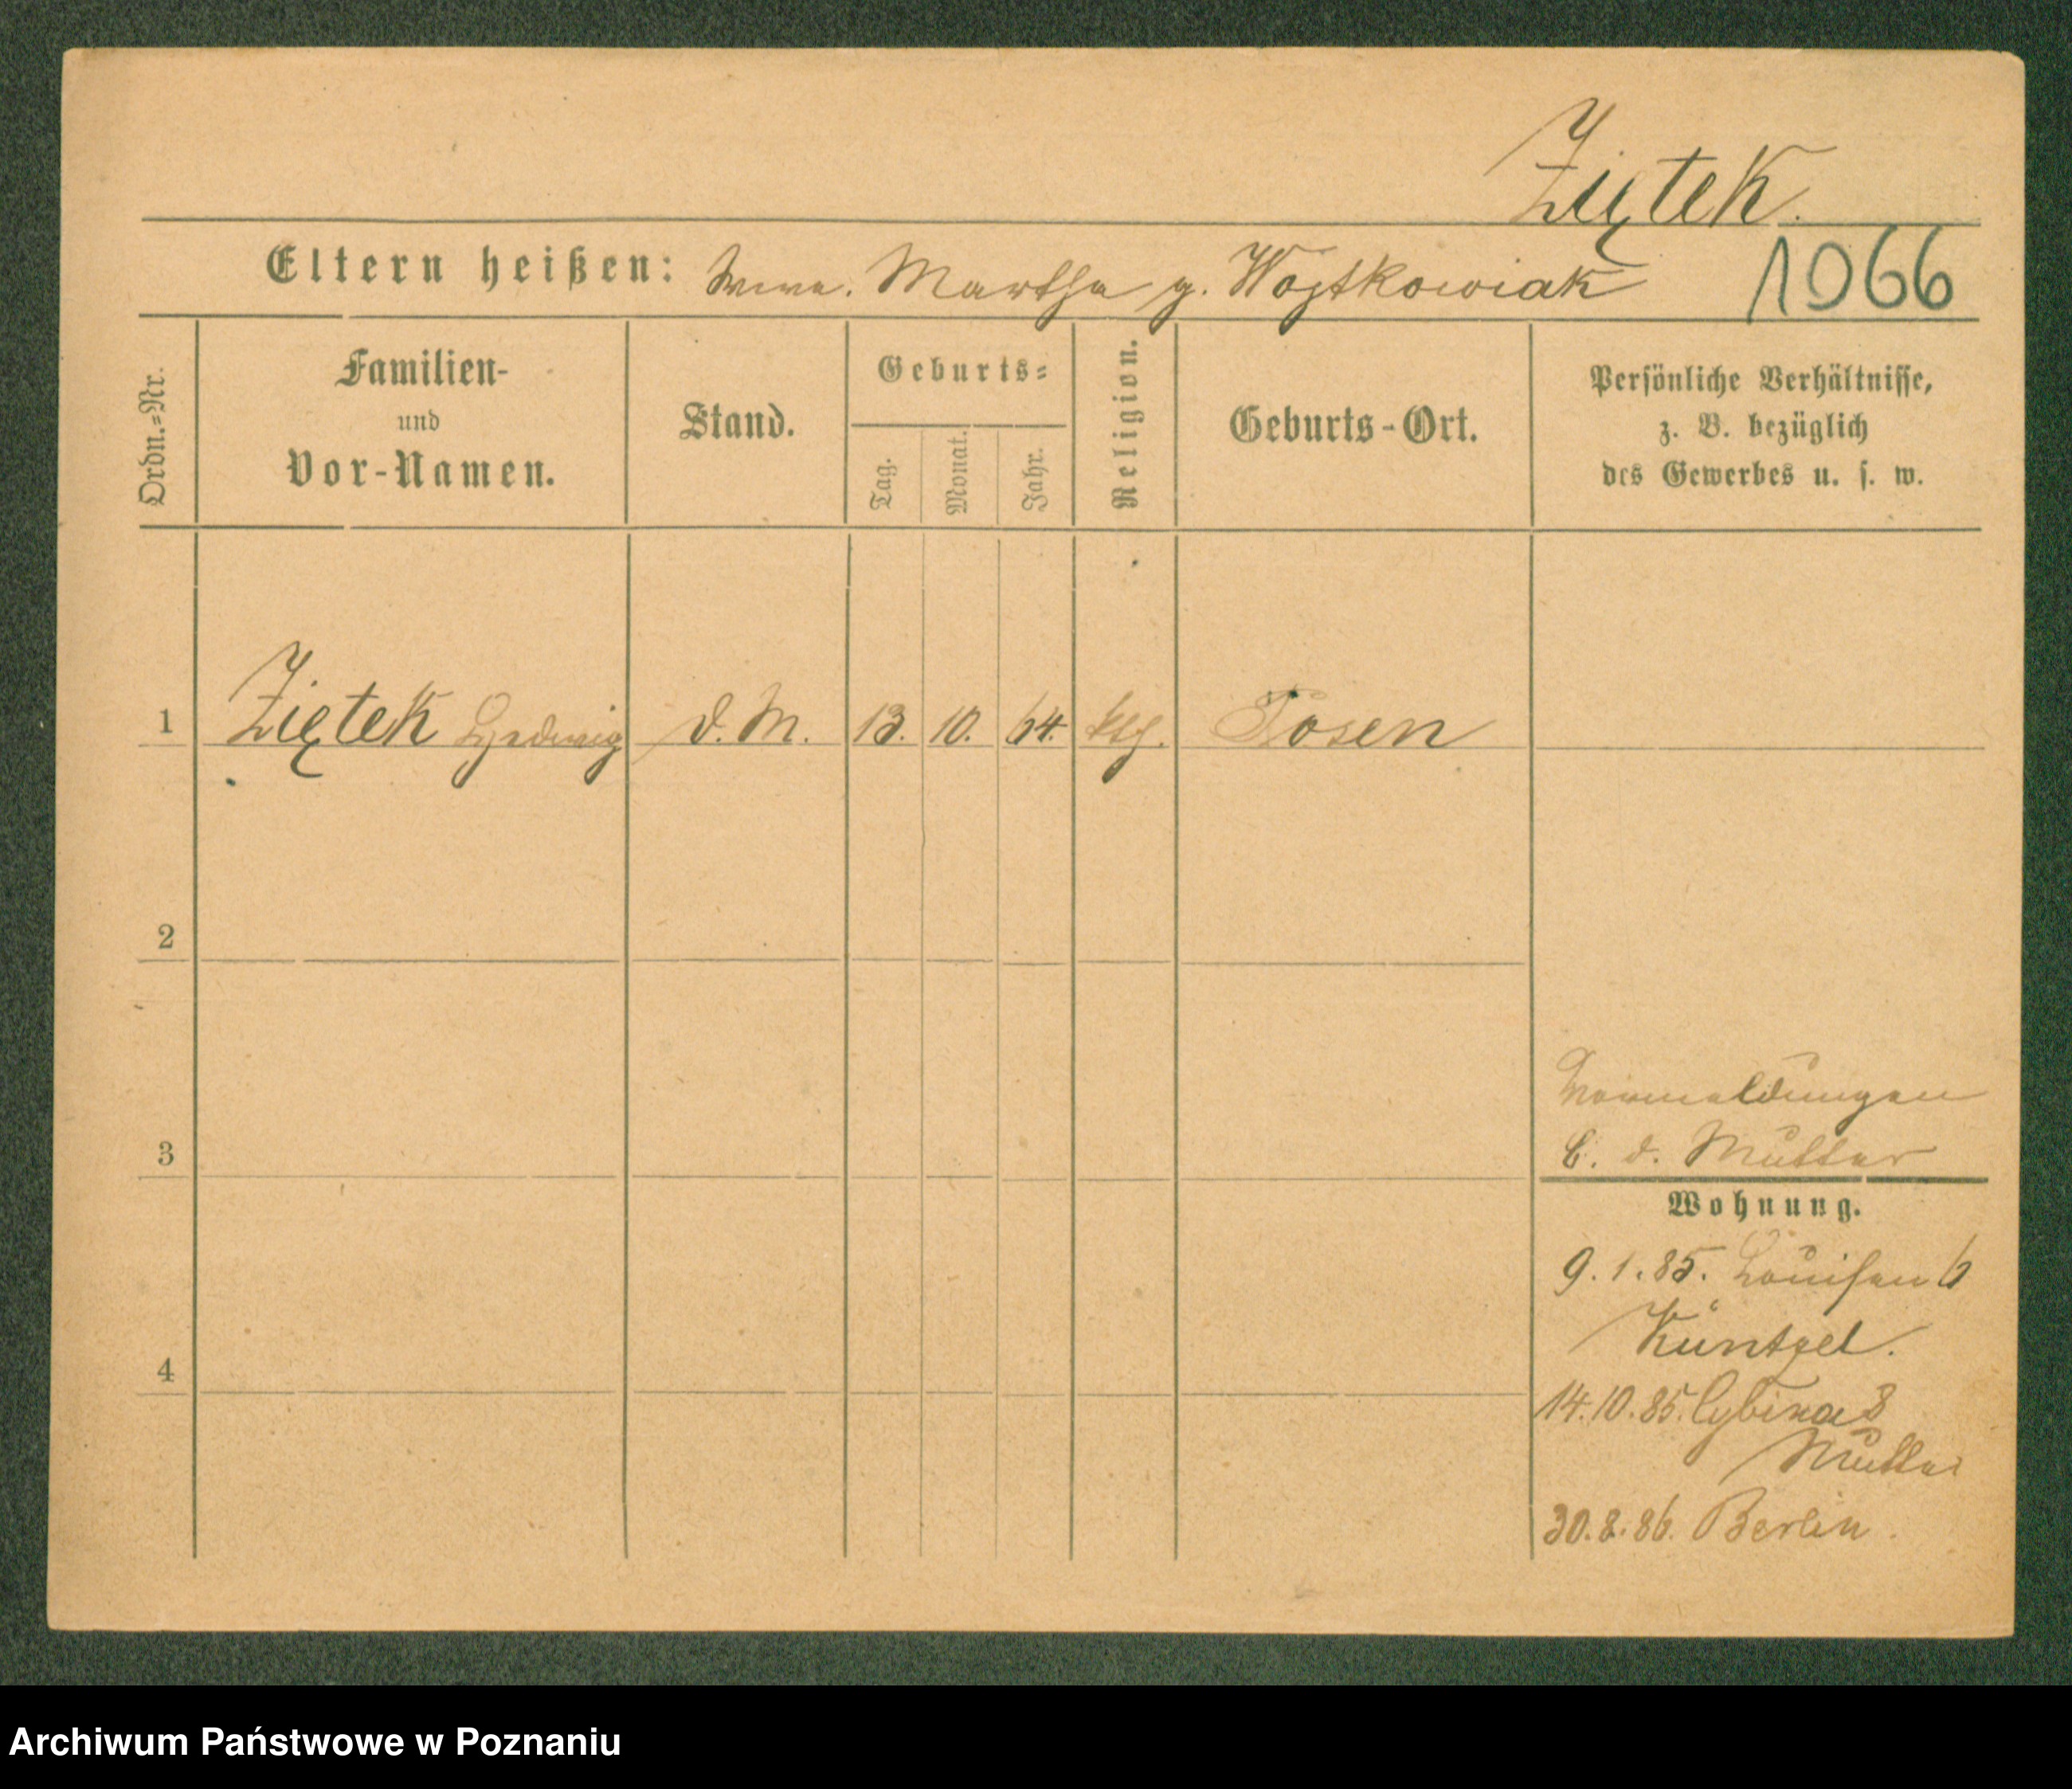 Ziętek.
Eltern heißen: Wwe. Martha g. Wojtkowiak 1066
Ordn.=Nr.
Familien-
und
Vor-Namen.
Stand.
Geburts=
Tag.
Monat.
Jahr.
Religion.
Geburts-Ort.
Persönliche Verhältnisse,
z. B. bezüglich
des Gewerbes u. s. w.
1 Ziętek Hedwig d. M. 13. 10. 64. kth. Posen
2
3
4
Vormeldungen
b. d. Mutter
Wohnung.
9.1.85. Louisen 6
Küntzel.
14.10.85. Cybina 8
Mutter
30.8.86. Berlin.
Archiwum Państwowe w Poznaniu